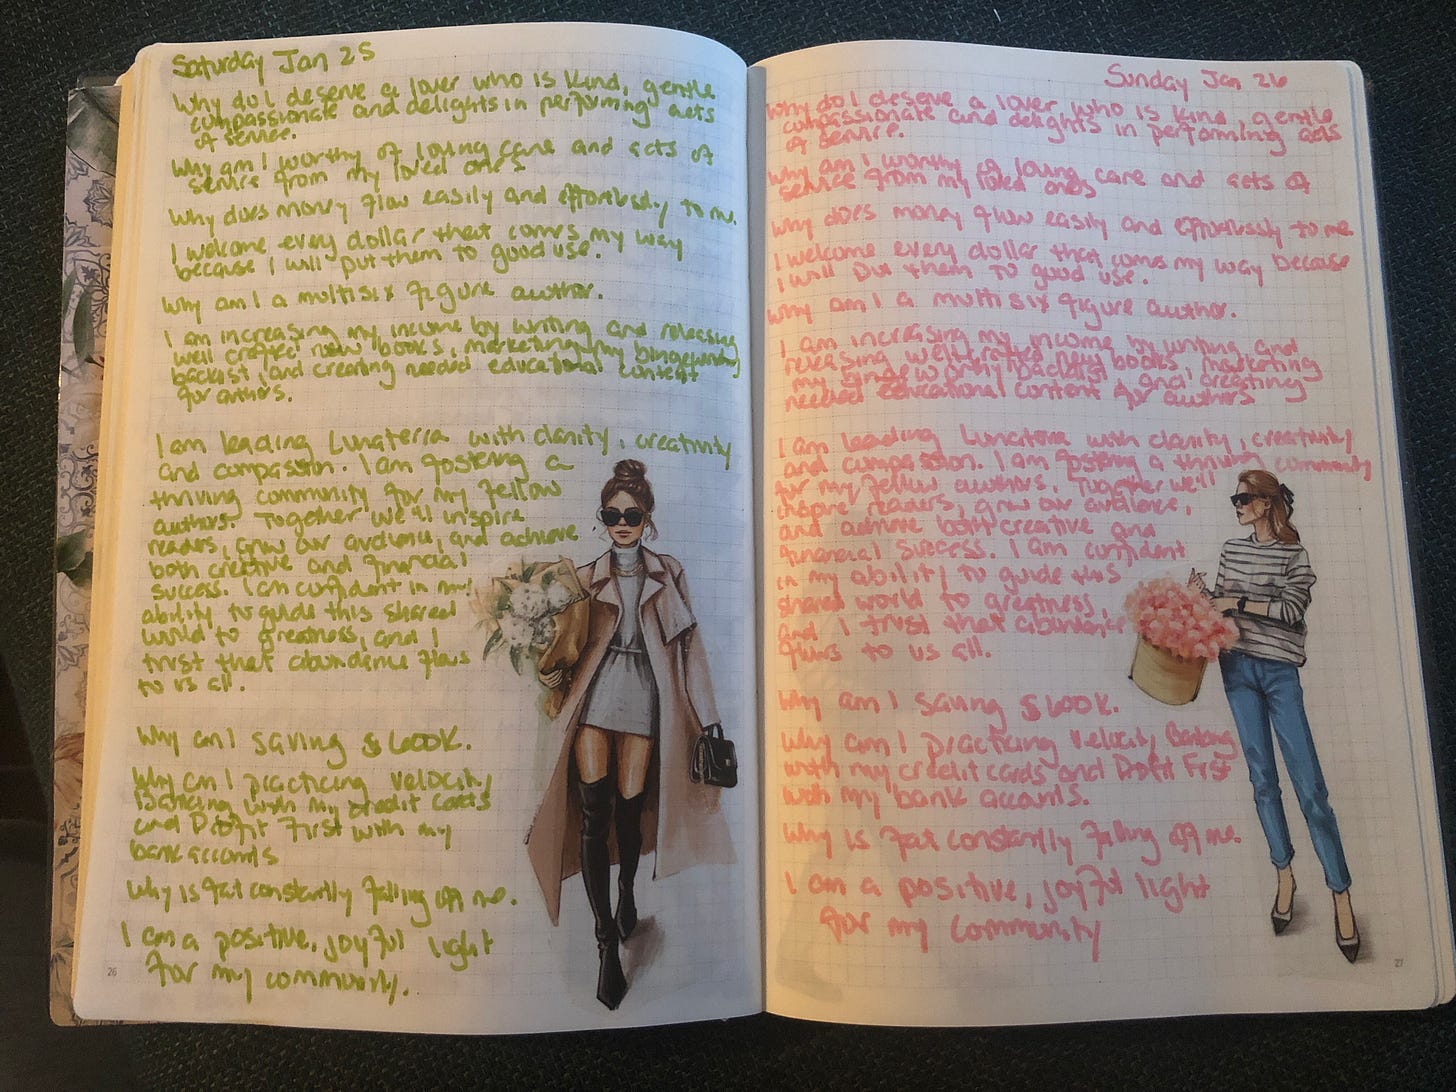 Saturday Jan 25
Why do I deserve a lover who is kind, gentle
compassionate and delights in performing acts
of service.
Why am I worthy of loving care and acts of
service from my loved ones
Why does money flow easily and effortlessly to me.
I welcome every dollar that comes my way
because I will put them to good use.
Why am I a multi six figure author.
I am increasing my income by writing and releasing
well crafted new books, marketing my bingeworthy
backlist and creating needed educational content
for authors.
I am leading Lunaterra with clarity, creativity
and compassion. I am fostering a
thriving community for my fellow
authors. Together we'll inspire
readers, grow our audience, and achieve
both creative and financial
success. I am confident in my
ability to guide this shared
world to greatness, and I
trust that abundance flows
to us all.
Why am I saving $600K.
Why am I practicing velocity
Banking with my credit cards
and Profit First with my
bank accounts
Why is fat constantly falling off me.
I am a positive, joyful light
for my community.
26
Sunday Jan 26
Why do I deserve a lover who is kind, gentle
compassionate and delights in performing acts
of service.
Why am I worthy of loving care and acts of
service from my loved ones
Why does money flow easily and effortlessly to me
I welcome every dollar that comes my way because
I will put them to good use.
Why am I a multi six figure author.
I am increasing my income by writing and
releasing well crafted new books, marketing
my bingeworthy backlist, and creating
needed educational content for authors
I am leading Lunaterra with clarity, creativity
and compassion. I am fostering a thriving community
for my fellow authors. Together we'll
inspire readers, grow our audience,
and achieve both creative and
financial success. I am confident
in my ability to guide this
shared world to greatness,
and I trust that abundance
flows to us all.
Why am I saving $600K.
Why am I practicing velocity Banking
with my credit cards and Profit First
with my bank accounts.
Why is fat constantly falling off me.
I am a positive, joyful light
for my community
27